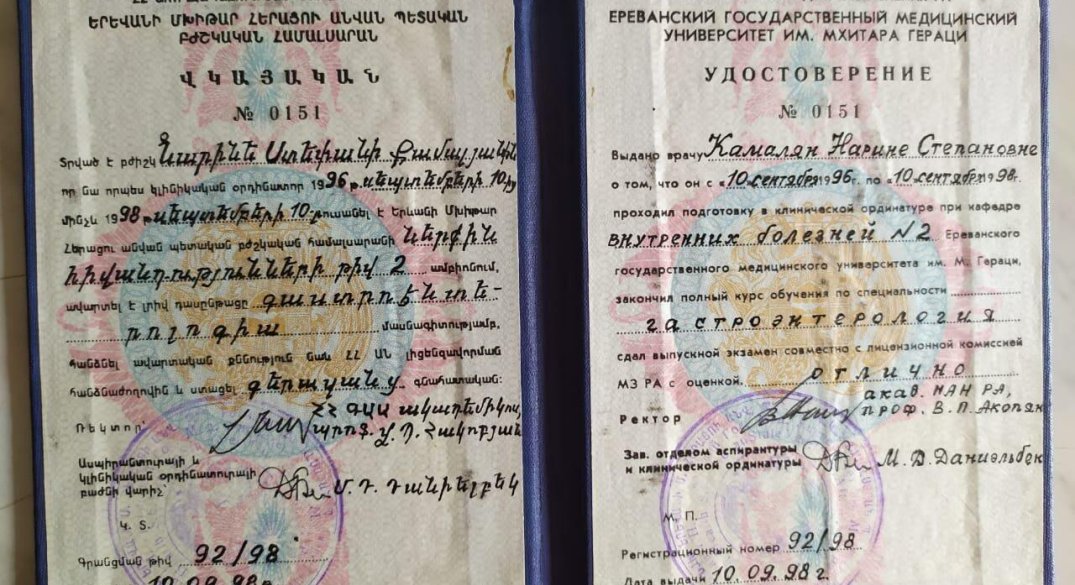 ԵՐԵՎԱՆԻ ՄԽԻԹԱՐ ՀԵՐԱՑՈՒ ԱՆՎԱՆ ՊԵՏԱԿԱՆ
ԲԺՇԿԱԿԱՆ ՀԱՄԱԼՍԱՐԱՆ
ՎԿԱՅԱԿԱՆ
№ 0151
Տրված է բժիշկ Նարինե Ստեփանի Քամալյանին
որ նա որպես կլինիկական օրդինատոր 1996 թ. սեպտեմբերի 10-ից
մինչև 1998 թ. սեպտեմբերի 10-ը ուսանել է Երևանի Մխիթար
Հերացու անվան պետական բժշկական համալսարանի Ներքին
հիվանդությունների թիվ 2 ամբիոնում,
ավարտել է լրիվ դասընթացը գաստրոէնտե-
րոլոգիա մասնագիտությամբ,
հանձնել ավարտական քննություն նաև ՀՀ ԱՆ լիցենզավորման
հանձնաժողովին և ստացել գերազանց գնահատական:
ՀՀ ԳԱԱ ակադեմիկոս,
Ռեկտոր՝ պրոֆ. Վ. Պ. Հակոբյան
Ասպիրանտուրայի և
կլինիկական օրդինատուրայի
բաժնի վարիչ՝ Մ. Դ. Դանիելբեկ
Կ. Տ.
Գրանցման թիվ 92/98
10.09.98թ
ЕРЕВАНСКИЙ ГОСУДАРСТВЕННЫЙ МЕДИЦИНСКИЙ
УНИВЕРСИТЕТ ИМ. МХИТАРА ГЕРАЦИ
УДОСТОВЕРЕНИЕ
№ 0151
Выдано врачу Камалян Нарине Степановне
о том, что он с «10 сентября 1996 г. по «10 сентября 1998 г.
проходил подготовку в клинической ординатуре при кафедре
внутренних болезней N2 Ереванского
государственного медицинского университета им. М. Гераци,
закончил полный курс обучения по специальности
гастроэнтерология
сдал выпускной экзамен совместно с лицензионной комиссией
МЗ РА с оценкой отлично
акад. НАН РА,
Ректор проф. В. П. Акопян
Зав. отделом аспирантуры
и клинической ординатуры М. Д. Даниэльбек
М. П.
Регистрационный номер 92/98
Дата выдачи 10.09.98 г.